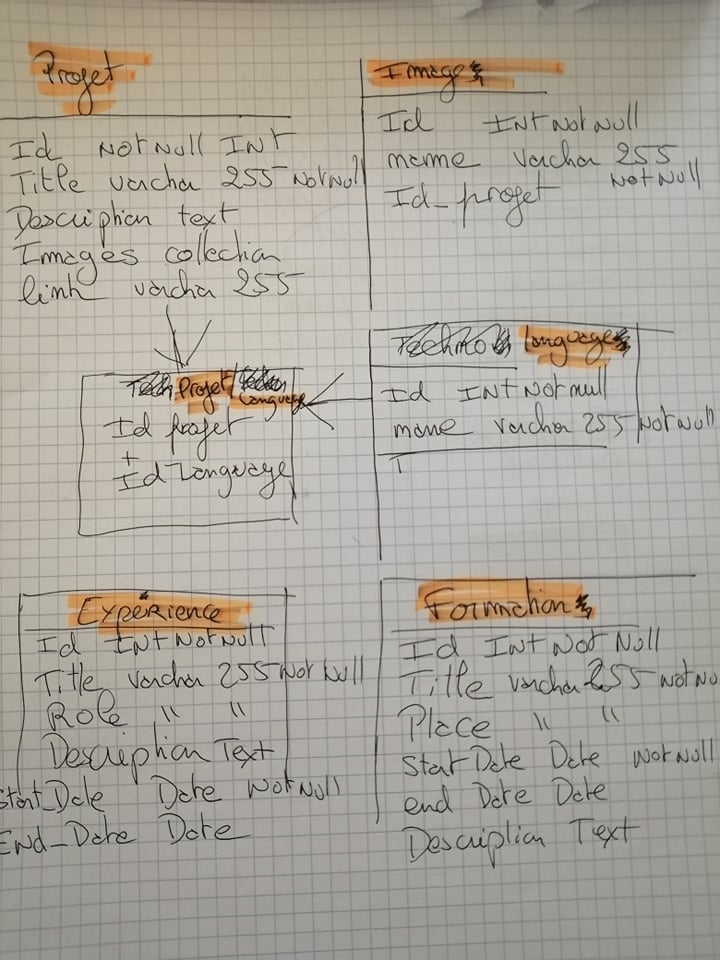 Projet
Id Not Null INT
Title varchar 255 Not Null
Description text
Images collection
link varchar 255
Image
Id INT Not Null
name varchar 255
Not Null
Id_projet
Projet/
Language
Id projet
+
Id Language
Language
Id INT Not null
name varchar 255 Not Null
Expérience
Id INT Not Null
Title varchar 255 Not Null
Role " "
Description Text
Start_Date Date Not Null
End_Date Date
Formation
Id INT Not Null
Title varchar 255 Not Nu
Place " "
Start Date Date Not Null
end Date Date
Description Text